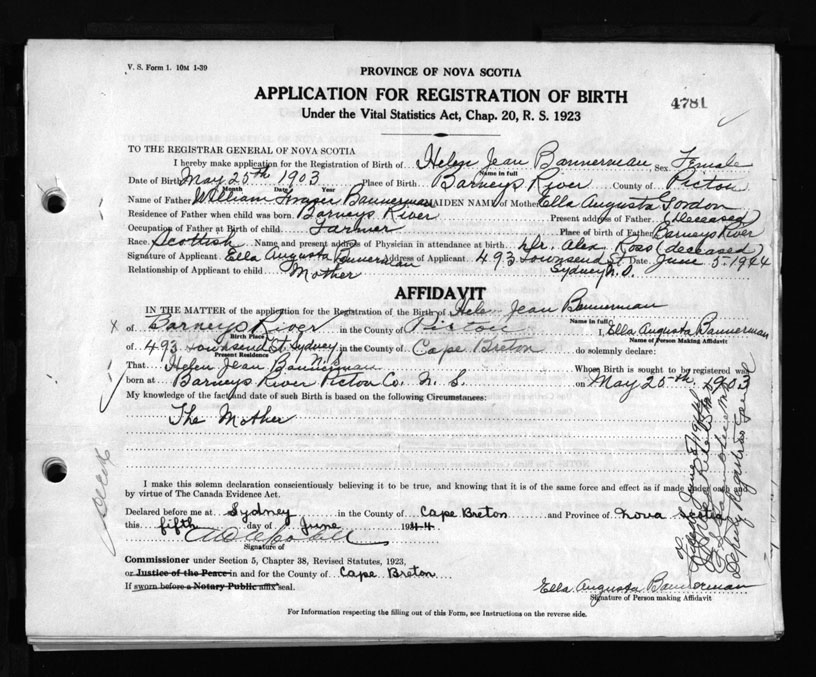 V. S. Form 1. 10M 1-39
PROVINCE OF NOVA SCOTIA
APPLICATION FOR REGISTRATION OF BIRTH
4781
Under the Vital Statistics Act, Chap. 20, R. S. 1923
TO THE REGISTRAR GENERAL OF NOVA SCOTIA
I hereby make application for the Registration of Birth of Helen Jean Bannerman Sex Female
Name in full
Date of Birth May 25th 1903 Place of Birth Barneys River County of Pictou
Month Date Year
Name of Father William Fraser Bannerman MAIDEN NAME of Mother Ella Augusta Gordon
Residence of Father when child was born Barneys River Present address of Father (deceased)
Occupation of Father at Birth of child Farmer Place of birth of Father Barneys River
Race Scottish Name and present address of Physician in attendance at birth Dr. Alex Ross (deceased)
Signature of Applicant Ella Augusta Bannerman Address of Applicant 493 Townsend St. Date June 5-1944
Relationship of Applicant to child Mother Sydney N.S.
AFFIDAVIT
IN THE MATTER of the application for the Registration of the Birth of Helen Jean Bannerman
Name in full
x of Barneys River in the County of Pictou I, Ella Augusta Bannerman
Birth Place Name of Person Making Affidavit
of 493 Townsend St. Sydney N.S. in the County of Cape Breton do solemnly declare:
Present Residence
That Helen Jean Bannerman Whose Birth is sought to be registered was
born at Barneys River Pictou Co. N. S. on May 25th 1903
My knowledge of the fact and date of such Birth is based on the following Circumstances:
The Mother
I make this solemn declaration conscientiously believing it to be true, and knowing that it is of the same force and effect as if made under oath and
by virtue of The Canada Evidence Act.
Declared before me at Sydney in the County of Cape Breton and Province of Nova Scotia
this fifth day of June 1944
Signature of
Commissioner under Section 5, Chapter 38, Revised Statutes, 1923,
or Justice of the Peace in and for the County of Cape Breton
If sworn before a Notary Public affix seal.
Ella Augusta Bannerman
Signature of Person making Affidavit
For Information respecting the filling out of this Form, see Instructions on the reverse side.
Deputy Registrar General